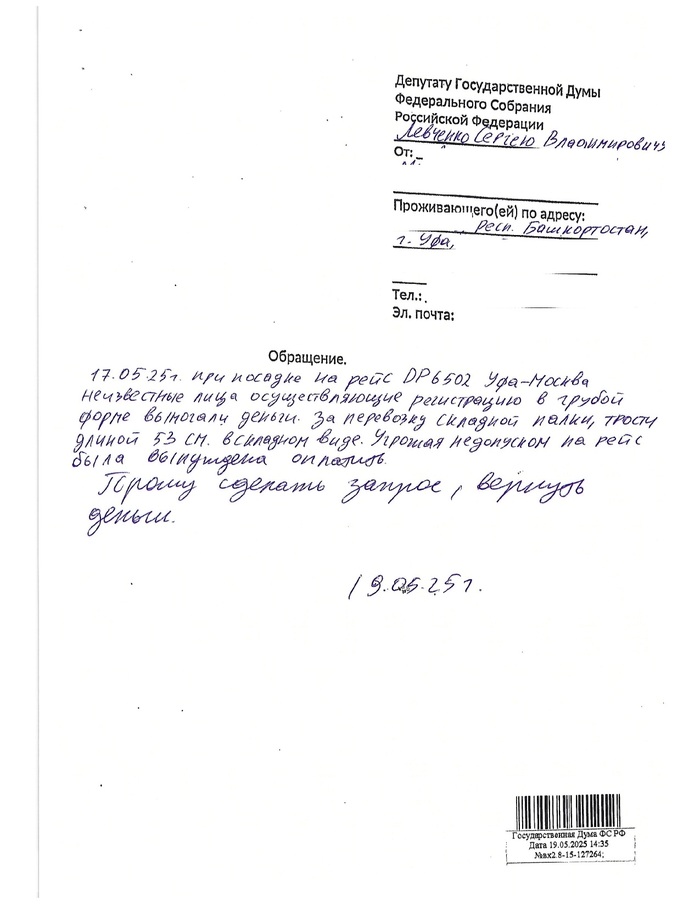 Депутату Государственной Думы
Федерального Собрания
Российской Федерации
Левченко Сергею Владимировичу
От:
Проживающего(ей) по адресу:
респ. Башкортостан,
г. Уфа,
Тел.:
Эл. почта:
Обращение.
17.05.25г. при посадке на рейс DP6502 Уфа-Москва
неизвестные лица осуществляющие регистрацию в грубой
форме вымогали деньги. За перевозку складной палки, трости
длиной 53 см. вскладном виде. Угрожая недопуском на рейс
была вынуждена оплатить.
Прошу сделать запрос, вернуть
деньги.
19.05.25г.
Государственная Дума ФС РФ
Дата 19.05.2025 14:35
№вх2.8-15-127264;